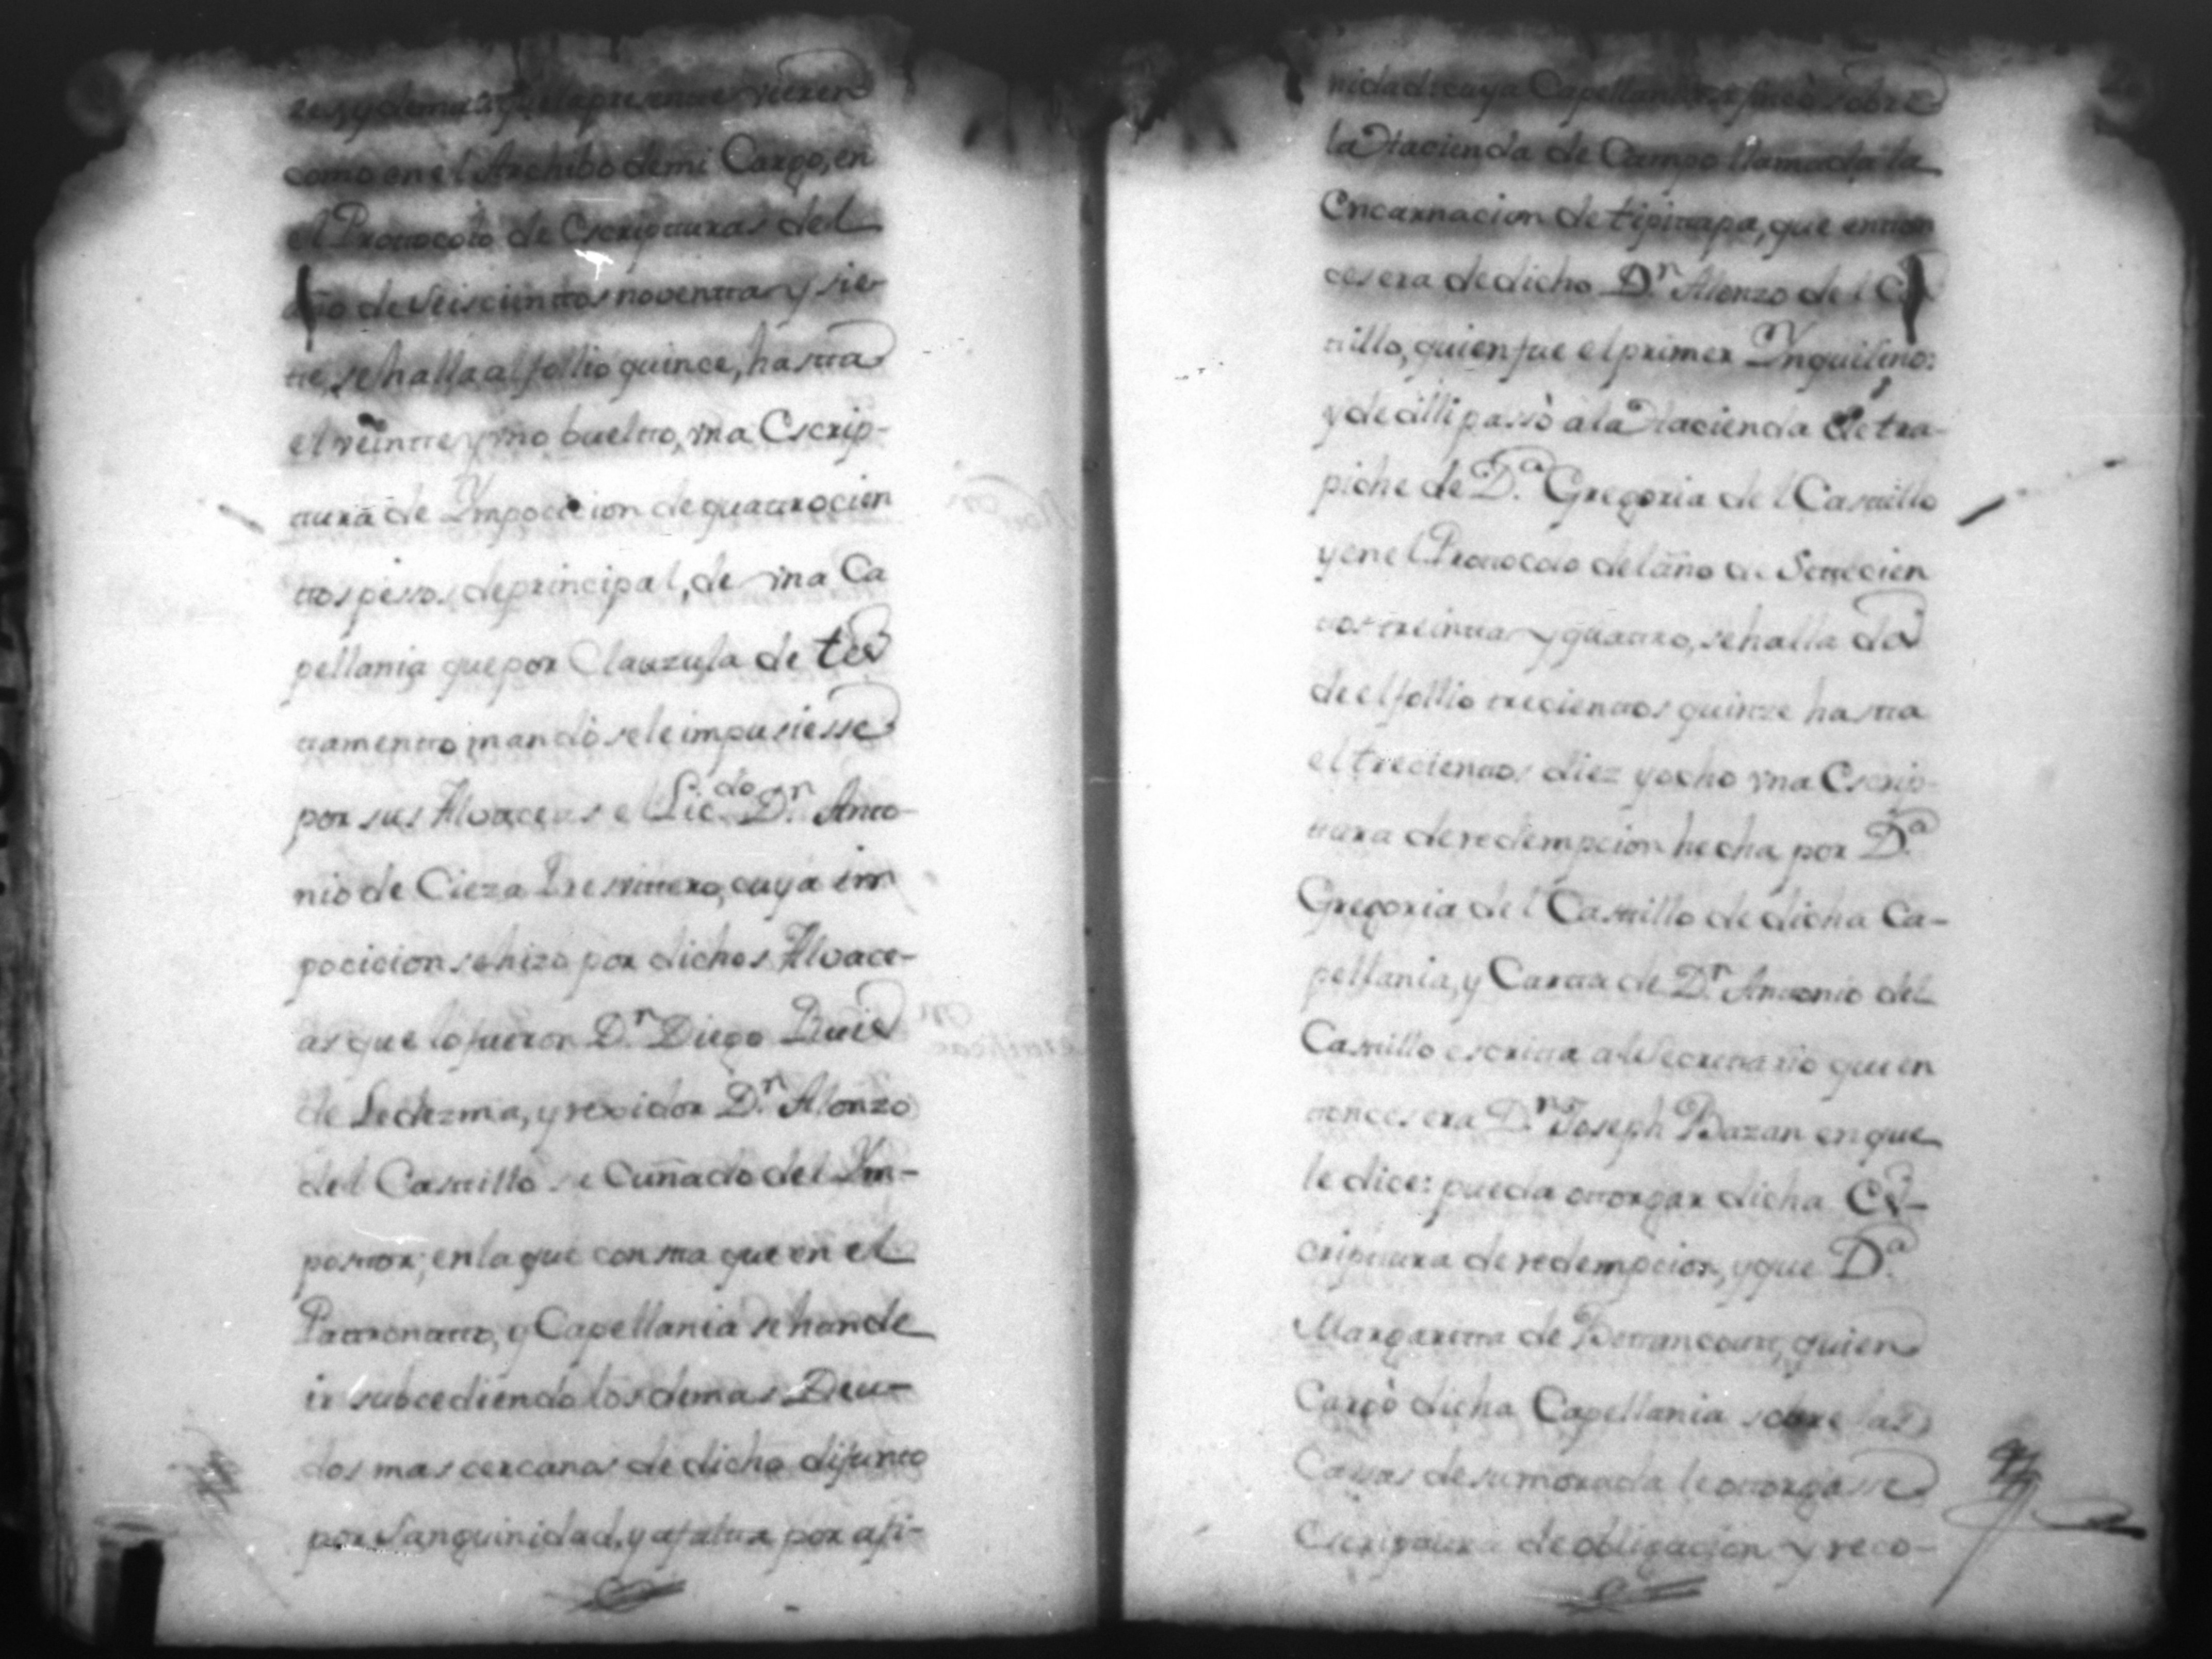 res, y demas que la presente vieren
como en el Archibo demi Cargo, en
el Prottocolo de Escriptturas del
año de seiscienttos noventta y sie-
tte, se halla al follio quince, hastta
el veintte y vno buelto, vna Escrip-
ttura de Ymposicion de quattrocien
ttos pessos de principal, de vna Ca
pellania que por Clauzula de tes
ttamentto mandò se le impusiesse
por sus Alvaceas el Lic.do D.n Antto-
nio de Cieza Presvittero, cuya im
pocicion se hizo por dichos Alvace-
as que lo fueron D.n Diego Ruis
de Ledezma, y rexidor D.n Alonzo
del Casttillo su Cuñado del Ym-
posttor; en la que constta que en el
Pattronatto, y Capellania se han de
ir subcediendo los demas Deu-
dos mas cercanos de dicho difuntto
por Sanguinidad, y afaltta por afi-
nidad: cuya Capellania se fincò sobre
la Hacienda de Campo llamada la
Encarnacion de tipittapa, que entton
ces era de dicho D.n Alonzo del Cas
ttillo, quien fue el primer Ynquilino:
y de alli passò a la Hacienda de tra-
piche de D.a Gregoria del Casttillo
y en el Prottocolo del año de Settecien
ttos ttreintta y quattro, se halla des
de el follio trecienttos quinze hastta
el trecienttos diez y ocho vna Escrip-
ttura de redempcion hecha por D.a
Gregoria del Casttillo de dicha Ca-
pellania, y Cartta de D.n Anttonio del
Casttillo escritta al Secrettario que en
ttonces era D.n Joseph Bazan en que
le dice: pueda ottorgar dicha Es-
cripttura de redempcion, y que D.a
Margaritta de Bettancourtt, quien
Cargò dicha Capellania sobre las
Cassas de su morada le ottorgasse
Escripttura de obligacion y reco-